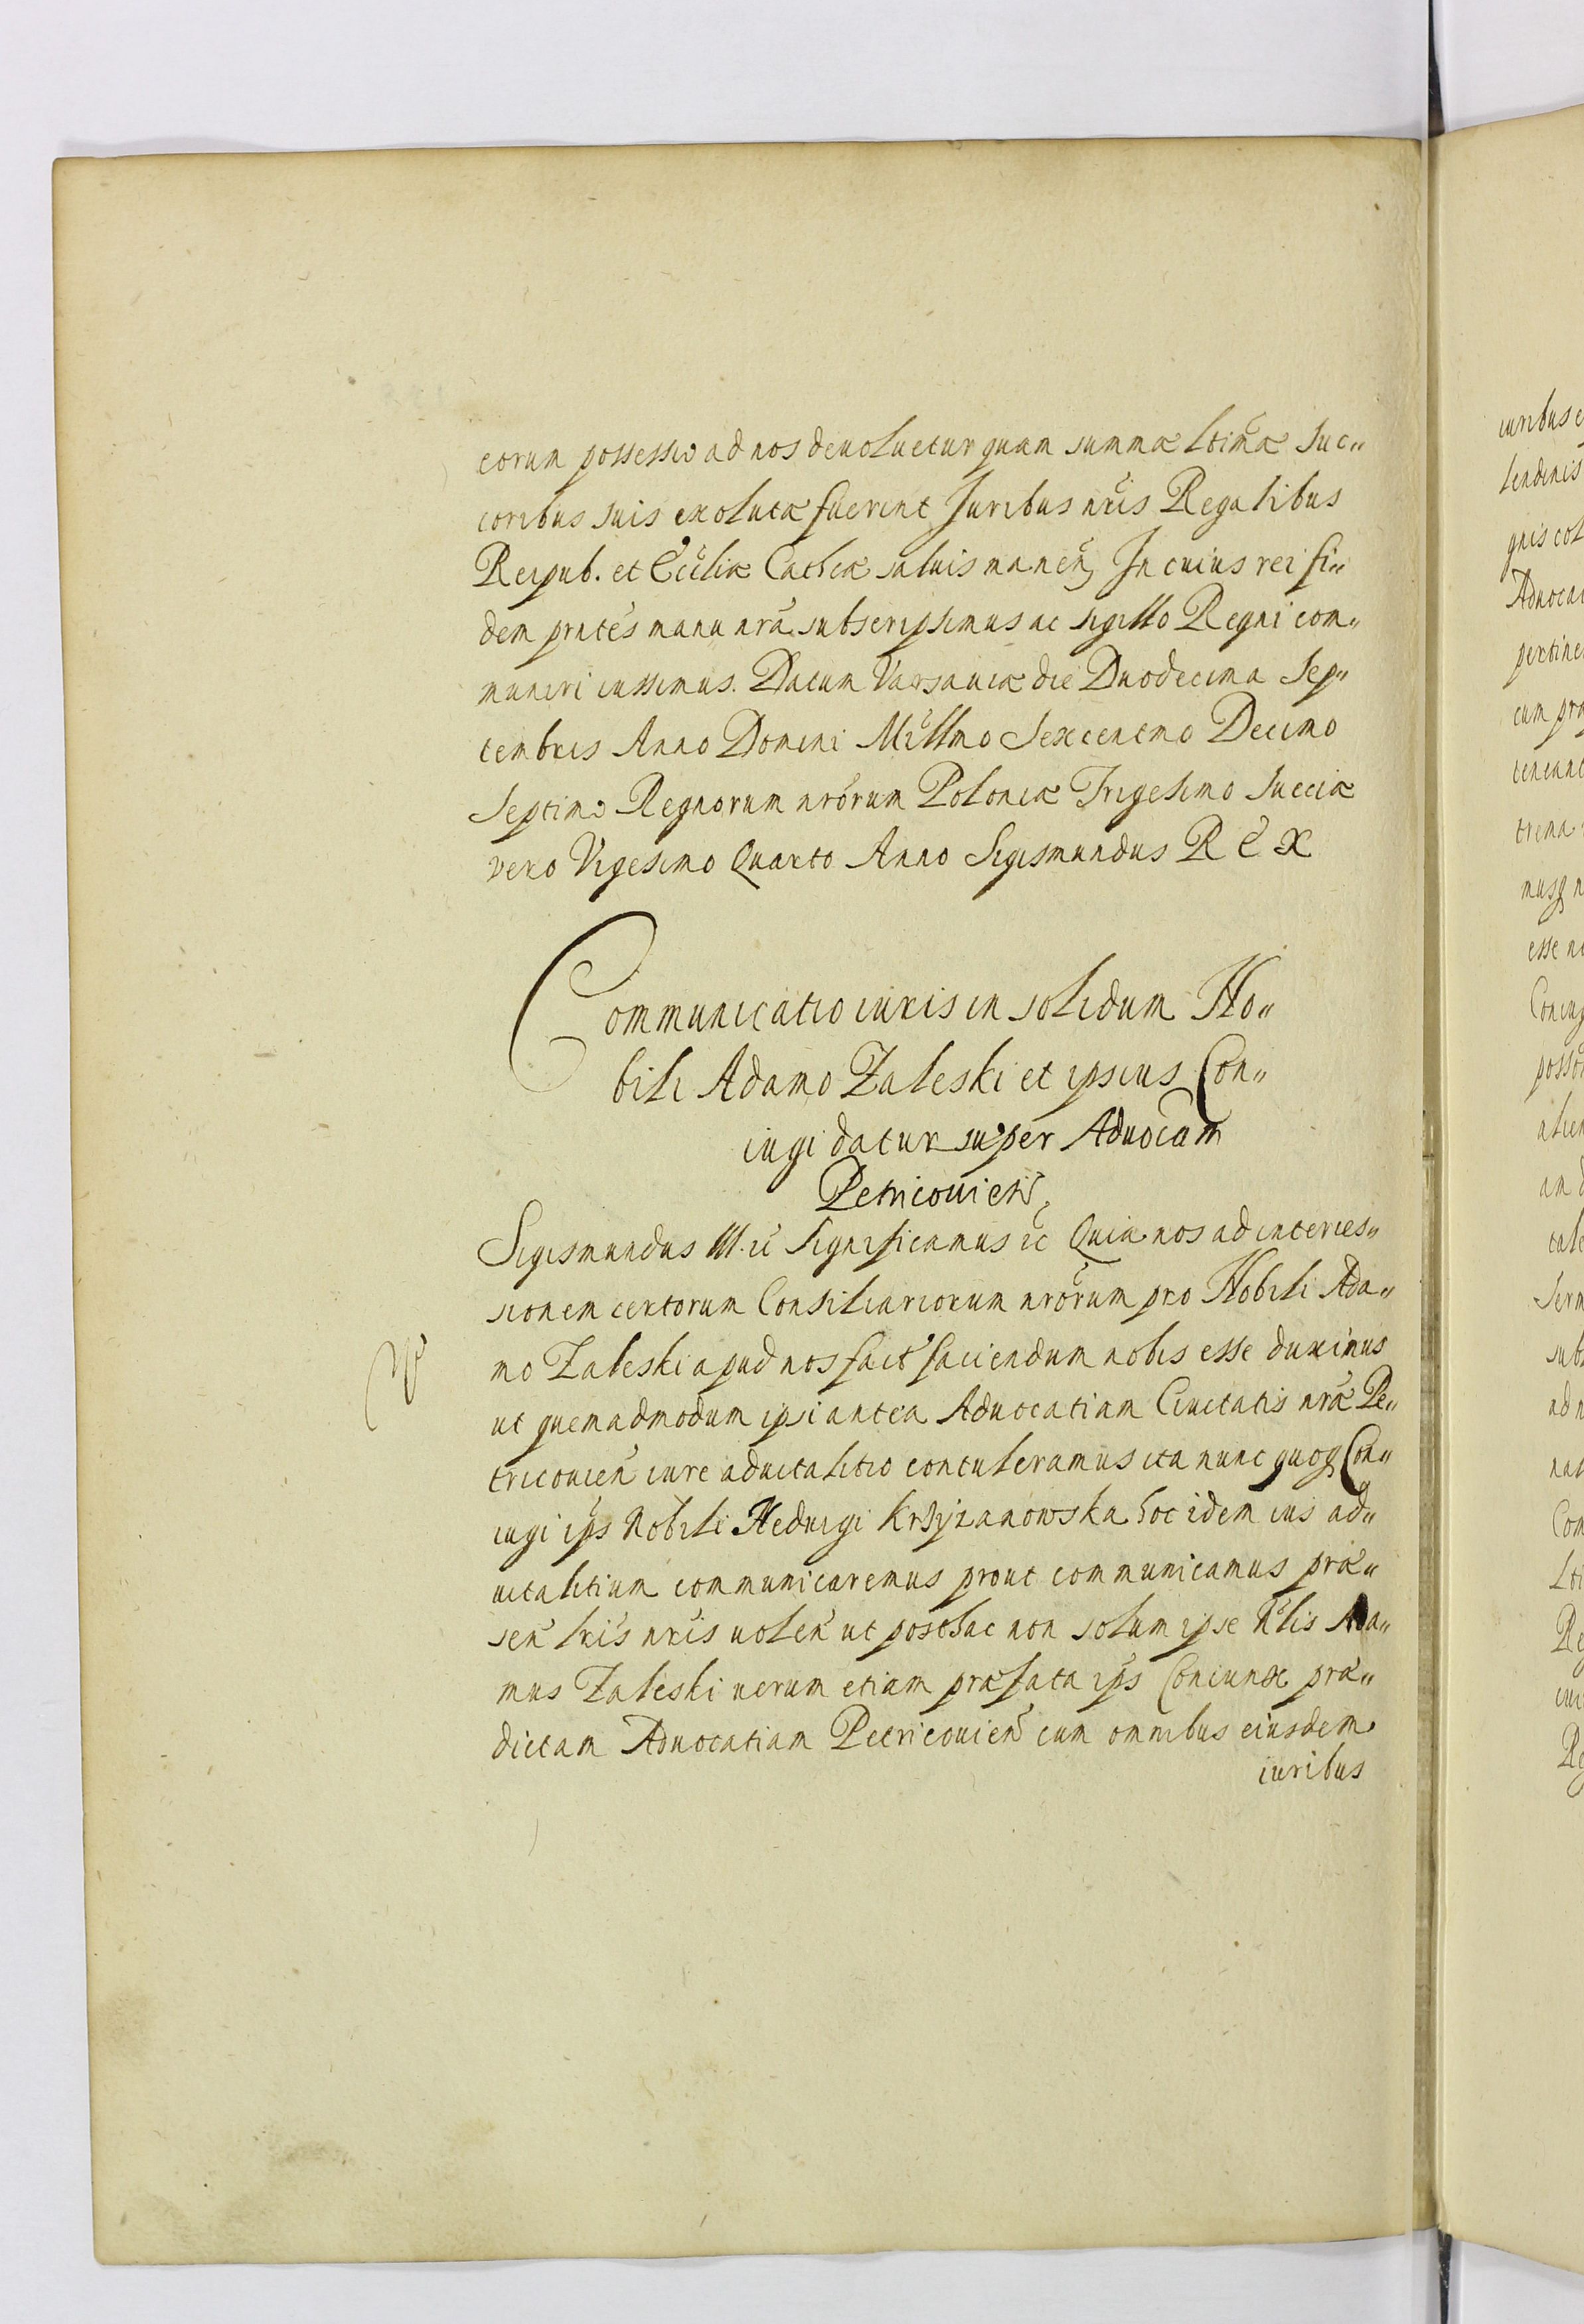 eorum possessio ad nos deuoluetur quam summæ ltimæ suc„
coribus suis exolutæ fuerint Juribus nris Regalibus
Reipub. et Eccliæ Cathcæ saluis manen, In cuius rei fi„
dem prntes manu nra subscripsimus ac sigillo Regni com„
muniri iussimus. Datum Varsauiæ die Duodecima Sep„
tembris Anno Domini Millmo Sexcentmo Decimo
Septimo Regnorum nrorum Poloniæ Trigesimo Sueciæ
vero Vigesimo Quarto Anno Sigismundus REX
Communicatio iuris in solidum No„
bili Adamo Zaleski et ipsius Con„
iugi datur super Aduocam
Petricouien,
Sigismundus III. ic Significamus ic Quia nos ad interces„
sionem certorum Consiliariorum nrorum pro Nobili Ada„
mo Zaleski apud nos fact faciendum nobis esse duximus
ut quemadmodum ipsi antea Aduocatiam Ciuitatis nræ Pe„
tricouien iure aduitalitio contuleramus ita nunc quoq Con„
iugi ips Nobili Heduigi Krzyzanowska hoc idem ius ad„
uitalitium communicaremus prout communicamus præ„
sen lris nris uolen ut posthac non solum ipse Nlis Ada„
mus Zaleski uerum etiam præfata ips Coniunx præ„
dictam Aduocatiam Petricouien cum omnibus eiusdem
iuribus
iuribus e
gnis col
Aduocat
pertine
cum pra
teneant
trema
musq n
esse n
Coniug